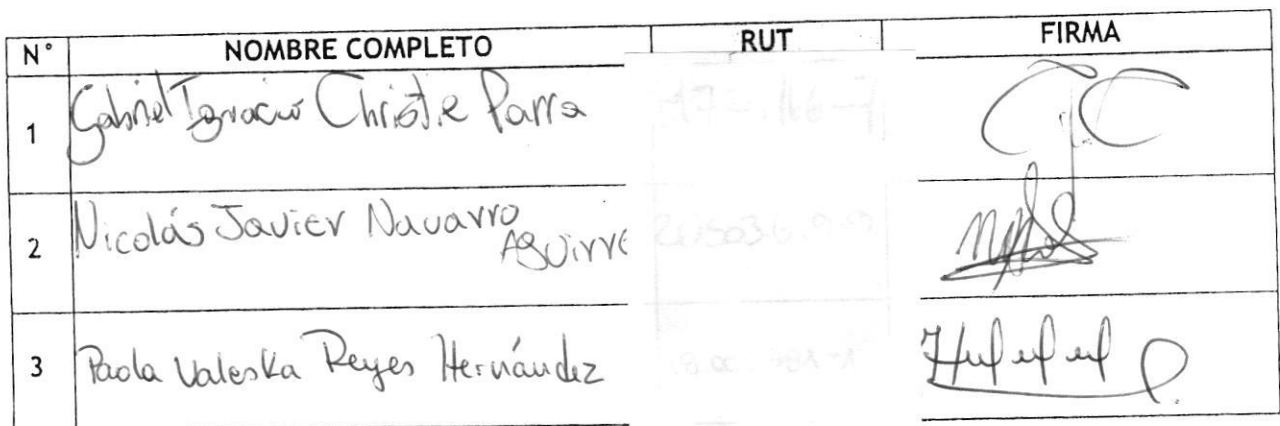 N° NOMBRE COMPLETO RUT FIRMA
1 Gabriel Ignacio Christie Parra
2 Nicolás Javier Navarro
Aguirre
3 Paola Valeska Reyes Hernández